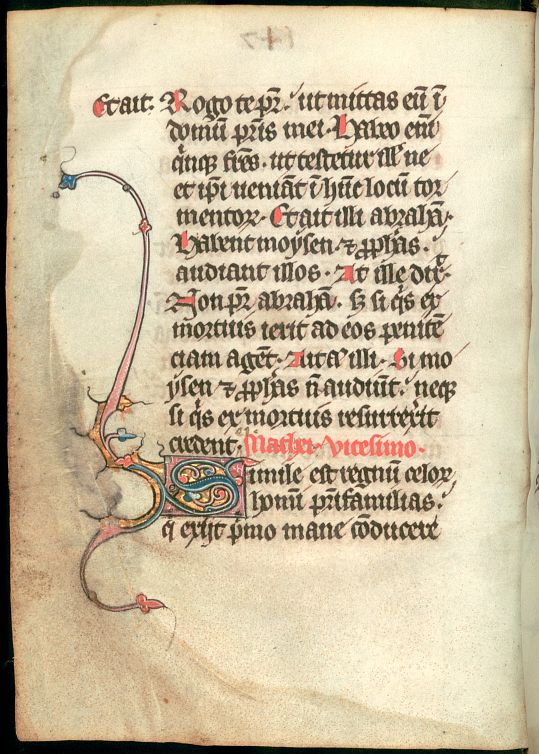 Et ait. Rogo te pr̄. ut mittas eū ī
domū pr̄is mei. Habeo enī
q̇nq̄ fr̄es. ut testetur ill̄ ne
et ip̄i ueniāt ī hūc locū tor
mentoꝝ. Et ait illi abrahā.
Habent moẏsen ⁊ ꝓph̄as.
audiant illos. At ille dix̄
Non pr̄ abrahā. sꝫ si q̇s ex
mortuis ierit ad eos penitē
ciam agēt. Ait aͭ illi. Si mo
ẏsen ⁊ ꝓph̄as n̄ audiūt. neqꝫ
si q̇s ex mortuis resurrexit
credent. Mathei. Vicesimo.
Simile est regnū celoꝝ
homī pr̄ifamilias.
q̇ exijt ṗmo mane cōducere